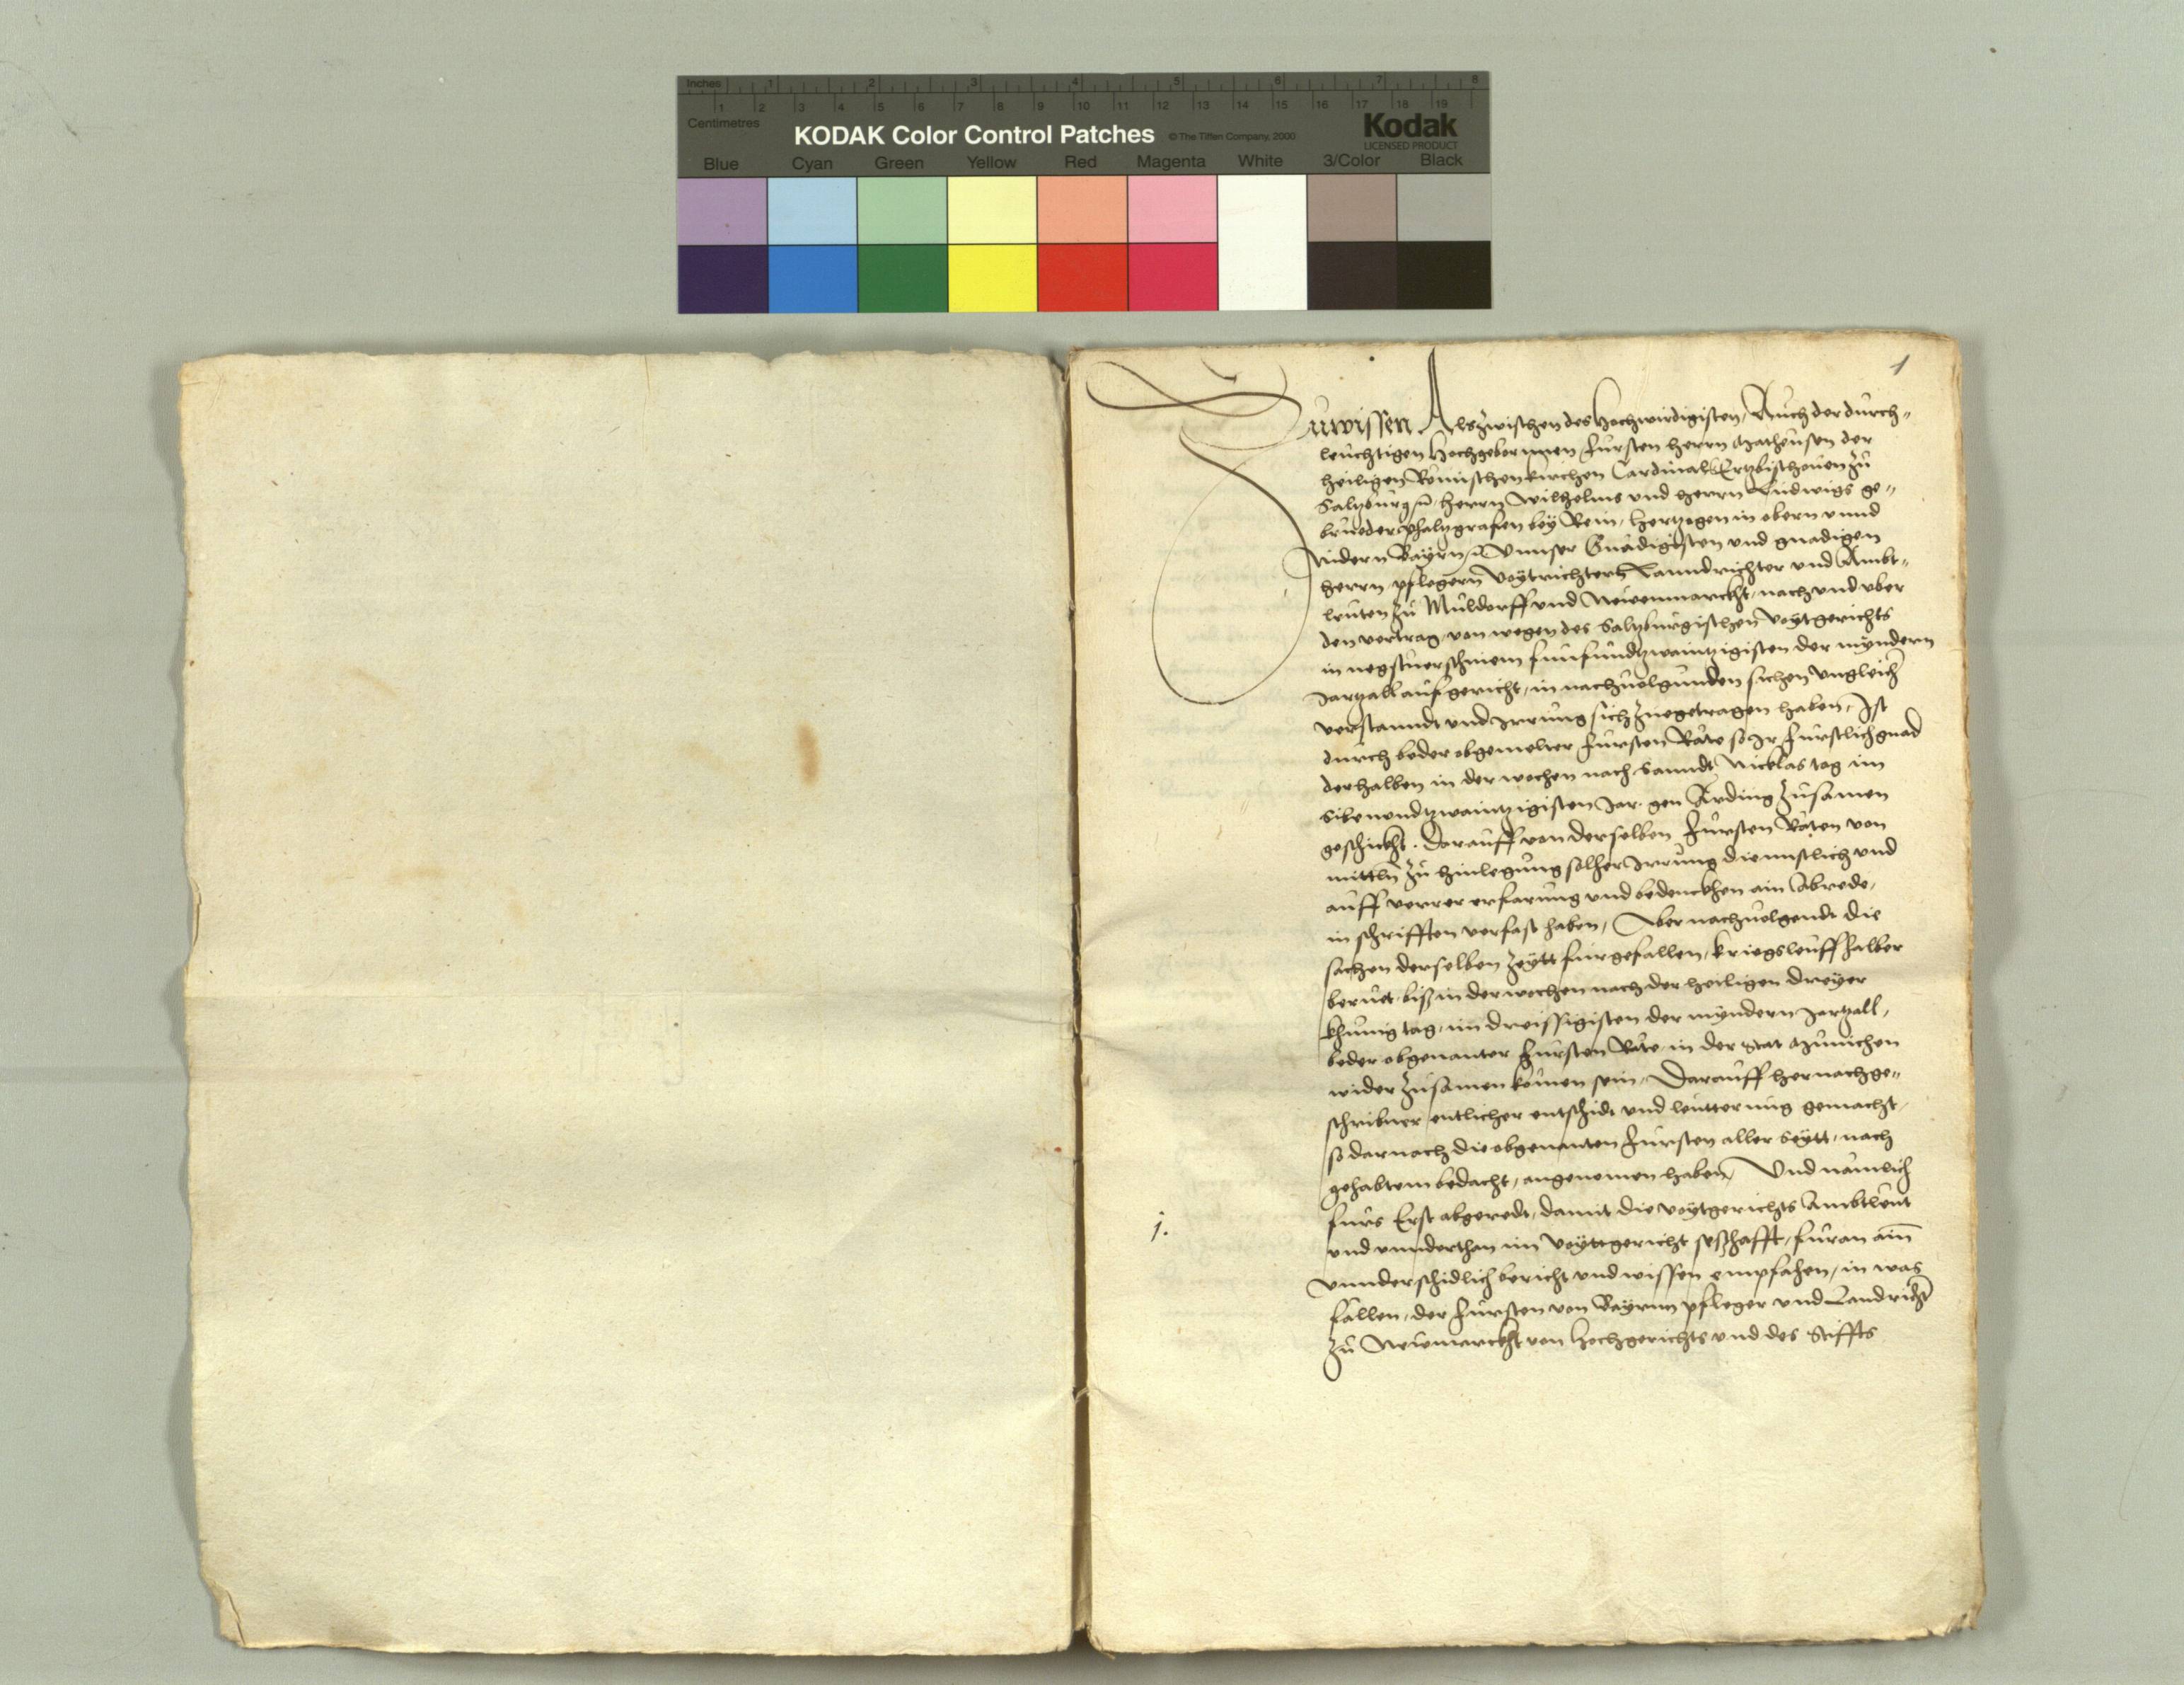 Inches 1 2 3 4 5 6 7 8
1 2 3 4 5 6 7 8 9 10 11 12 13 14 15 16 17 18 19
Centimetres
KODAK Color Control Patches © The Tiffen Company, 2000 Kodak
LICENSED PRODUCT
Blue Cyan Green Yellow Red Magenta White 3/Color Black
1
Zuwissen Als zwischen des Hochwirdigisten, Auch der durch„
leuchtigen Hochgebornnen Fürsten herrn Matheusen der
heiligen Römischen kirchen Cardinal Ertzbischouen zu
Saltzburg herrn Wilhelms und herrn Ludwigs ge„
brueder Phaltzgrafen bey Rein, Hertzogen in obern vnnd
Nidern Bayrn Vnnser Gnädigisten vnd gnadigen
herrn, pflegern Voytrichters Lanndrichter vnd Ambt„
leuten zu Müldorff vnd Newenmarckht, nach vnd vber
den vertrag, von wegen des Saltzburgischen Voytgerichts
in negstuerschinem funfundtzwaintzigisten der myndern
Jartzall aufgericht, in nachuolgunden sachen vngleich
verstanndt vnd Irrung sich zuegetragen haben, Ist
durch beder obgemelter Fürsten Räte so Ir Fürstlich gnad
derhalben in der wochen nach Sanndt Nicklas tag im
Sibenundtzwaintzigisten Jar. gen Ärding zusamen
geschickht. Darauff von derselben Fürsten Räten von
mittln zu hinlegung solher Irrung diennstlich vnd
auff verrer erfarung vnd bedenckhen ain Abrede,
in schrifften verfast haben, Aber nachuolgendt die
sachen derselben zeytt furgefallen, kriegsleuff halber
beruet, biß in der wochen nach der heiligen dreyer
khunig tag, im dreissigisten der myndern Jartzall,
beder obgenanter Fürsten Räte, in der Stat München
wider zusamen komen sein, Darauff hernachge„
schribner entlicher entschidt vnd leutterung gemacht,
so darnach die obgenanten Fürsten aller seytt, nach
gehabtem bedacht, angenomen haben, Vnd nämlich
1. furs Erst abgeredt, damit die voytgerichts Ambtleut
vnd vnnderthan im Voyttgericht seßhafft, füran ain
vnnderschidlich bericht vnd wissen empfahen, in was
fällen, der Fürsten von Bayrnn pfleger vnd Landricht
zu Newmarckht von Hochgerichts vnd des Stiffts